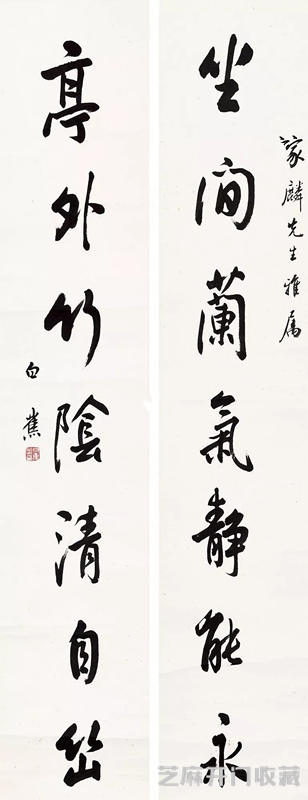 家麟先生雅屬
坐間蘭氣靜能永
亭外竹陰清自幽
白蕉
芝麻开门收藏